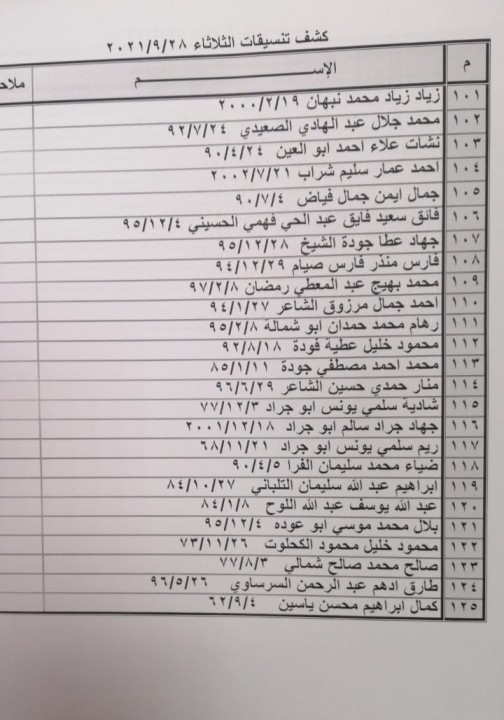 كشف تنسيقات الثلاثاء ٢٠٢١/٩/٢٨
م الإســــــــــم ملاحـ
١٠١ زياد زياد محمد نبهان ٢٠٠٠/٢/١٩
١٠٢ محمد جلال عبد الهادي الصعيدي ٩٢/٧/٢٤
١٠٣ نشات علاء احمد ابو العين ٩٠/٤/٢٤
١٠٤ احمد عمار سليم شراب ٢٠٠٢/٧/٢١
١٠٥ جمال ايمن جمال فياض ٩٠/٧/٤
١٠٦ فائق سعيد فايق عبد الحي فهمي الحسيني ٩٥/١٢/٤
١٠٧ جهاد عطا جودة الشيخ ٩٥/١٢/٢٨
١٠٨ فارس منذر فارس صيام ٩٤/١٢/٢٩
١٠٩ محمد بهيج عبد المعطي رمضان ٩٧/٢/٨
١١٠ احمد جمال مرزوق الشاعر ٩٤/١/٢٧
١١١ رهام محمد حمدان ابو شمالة ٩٥/٢/٨
١١٢ محمود خليل عطية فودة ٩٢/٨/١٨
١١٣ محمد احمد مصطفي جودة ٨٥/١/١١
١١٤ منار حمدي حسين الشاعر ٩٦/٦/٢٩
١١٥ شادية سلمي يونس ابو جراد ٧٧/١٢/٣
١١٦ جهاد جراد سالم ابو جراد ٢٠٠١/١٢/١٨
١١٧ ريم سلمي يونس ابو جراد ٦٨/١١/٢١
١١٨ ضياء محمد سليمان الفرا ٩٠/٤/٥
١١٩ ابراهيم عبد الله سليمان التلباني ٨٤/١٠/٢٧
١٢٠ عبد الله يوسف عبد الله اللوح ٨٤/١/٨
١٢١ بلال محمد موسي ابو عوده ٩٥/١٢/٤
١٢٢ محمود خليل محمود الكحلوت ٧٣/١١/٢٦
١٢٣ صالح محمد صالح شمالي ٧٧/٨/٣
١٢٤ طارق ادهم عبد الرحمن السرساوي ٩٦/٥/٢٦
١٢٥ كمال ابراهيم محسن ياسين ٦٢/٩/٤